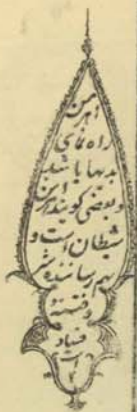 اهرمن
راه نمای
بدیها باشد
و بعضی گویند اهرمن
شیطان است و
بهم رسانندهٔ شر
و فتنه و
فساد
است